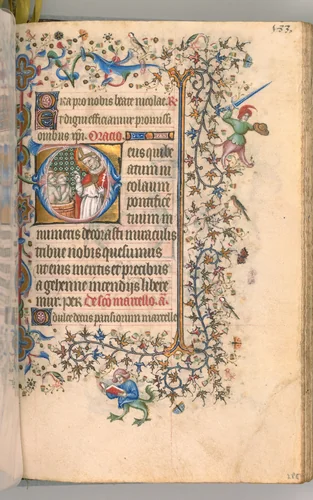 Ora pro nobis beate nicolae. R
Ut digni efficiamur promissi
onibus xpi. Oratio.
Deus qui be
atum ni
colaum
pontificē
tuum in
numeris decorasti miraculis
tribue nobis quesumus
ut eius meritis et precibus
a gehenne incendijs libere
mur. per. De sc̄o marcello. a.
O dulce decus parisiorum marcelle